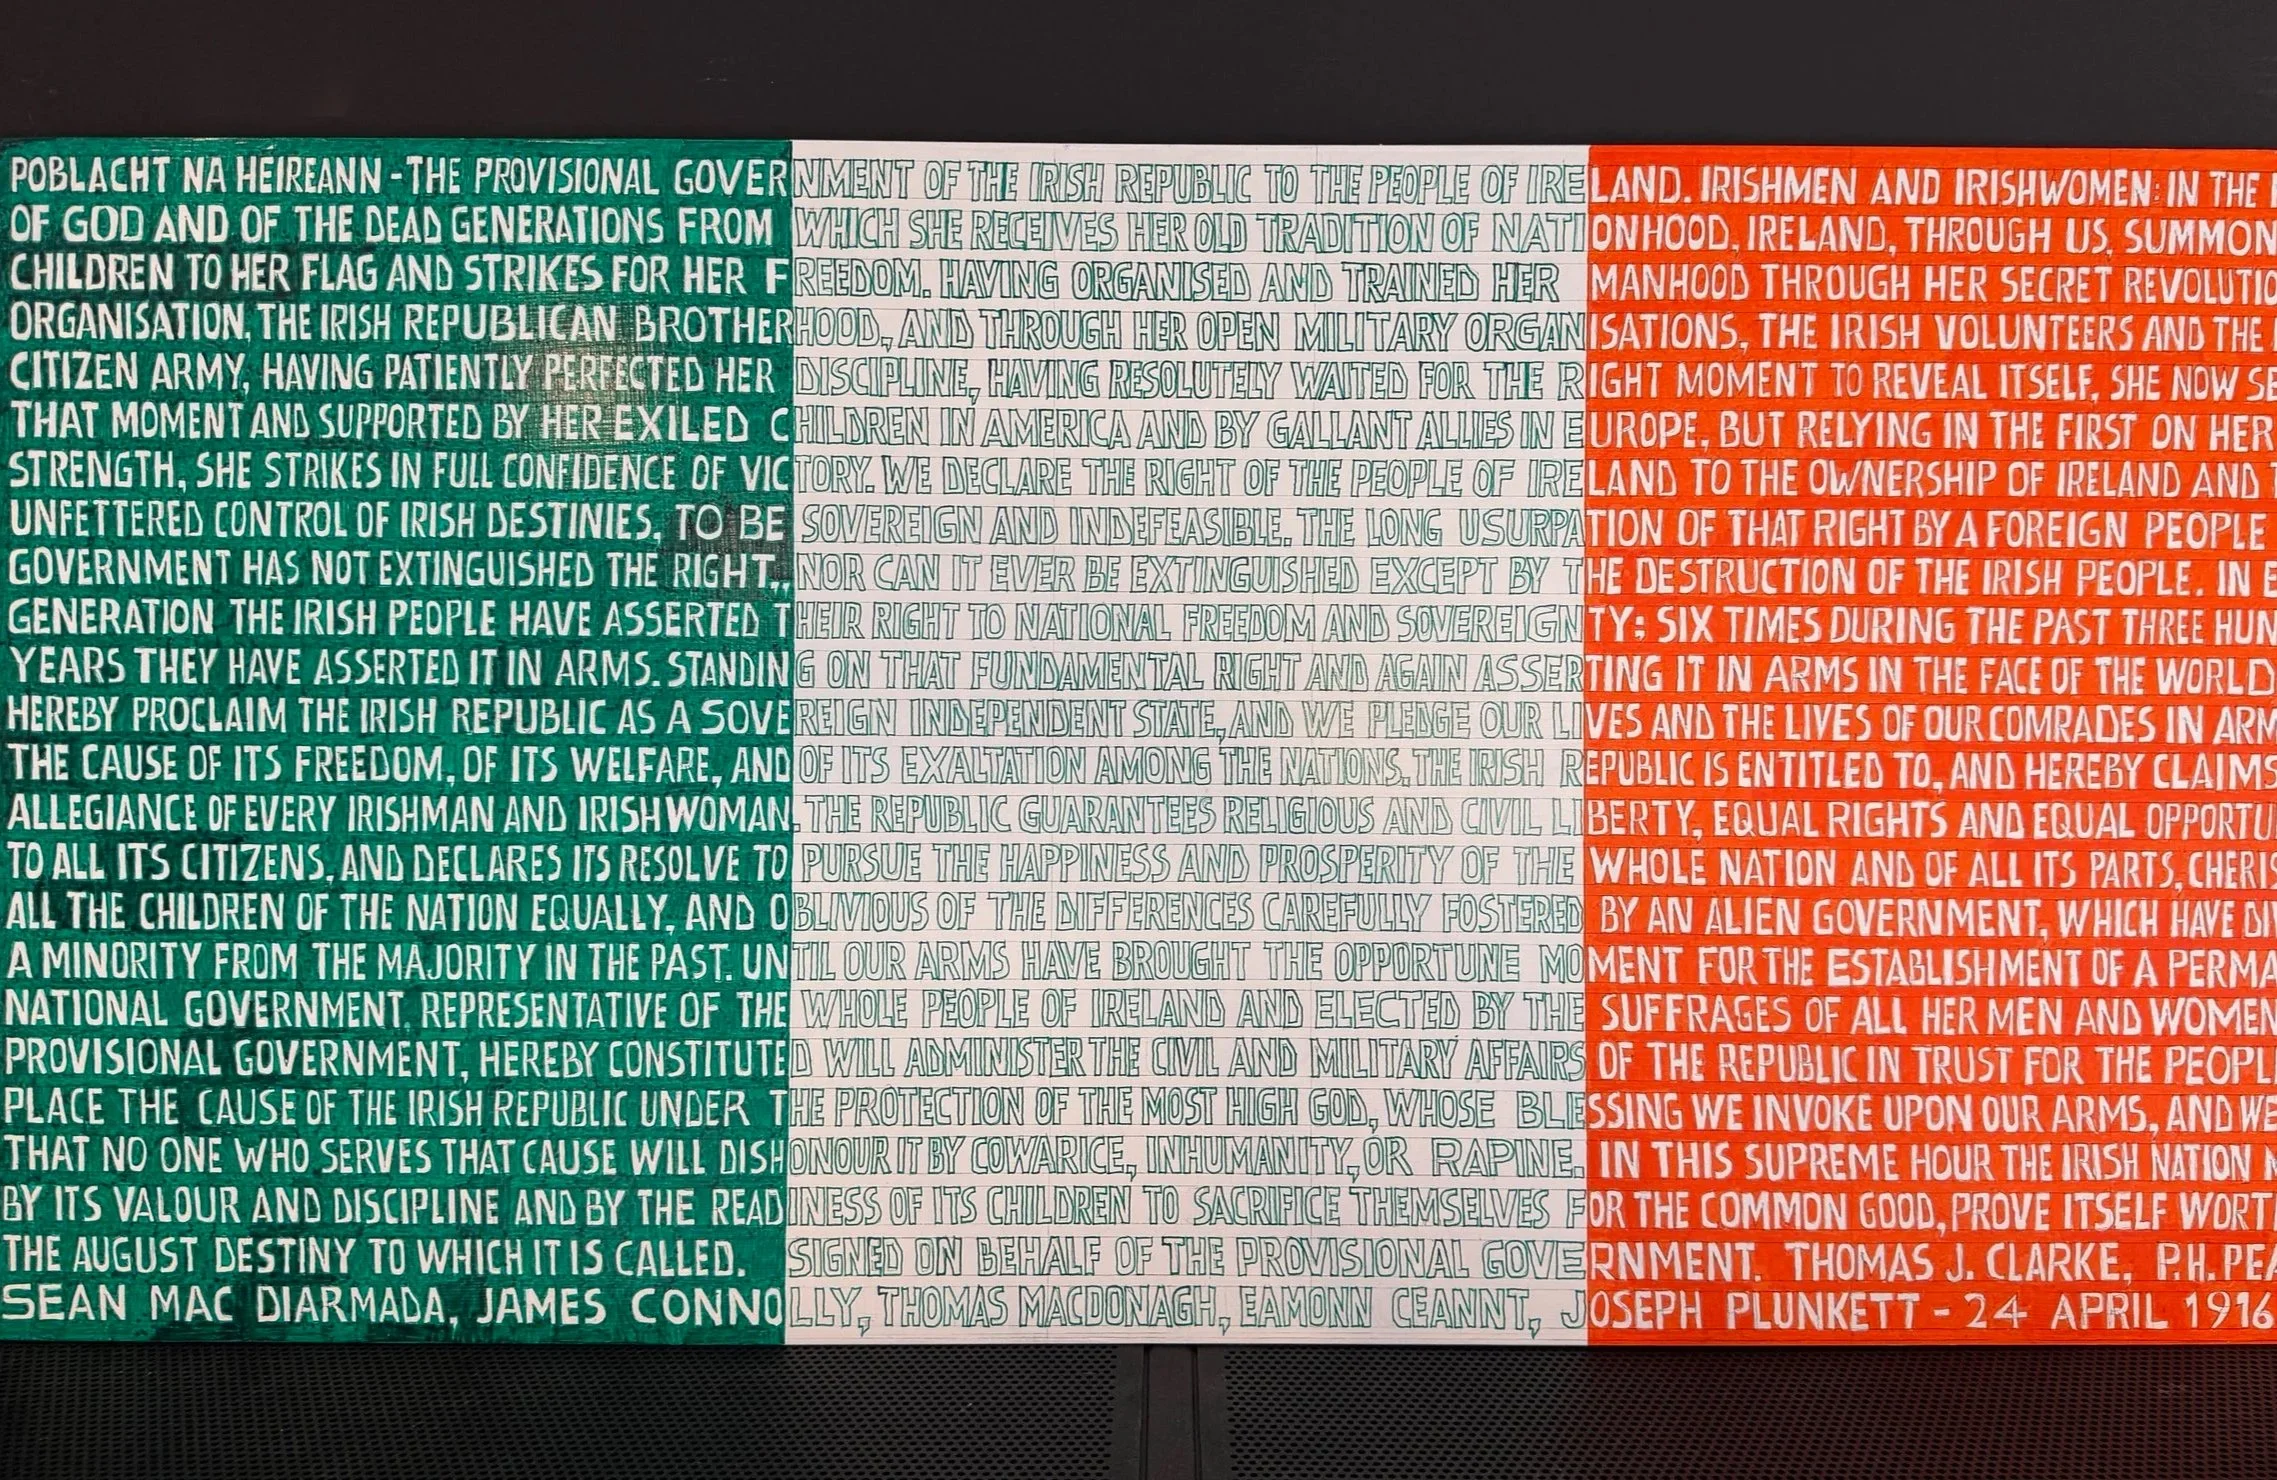 POBLACHT NA HEIREANN - THE PROVISIONAL GOVERNMENT OF THE IRISH REPUBLIC TO THE PEOPLE OF IRELAND. IRISHMEN AND IRISHWOMEN: IN THE
OF GOD AND OF THE DEAD GENERATIONS FROM WHICH SHE RECEIVES HER OLD TRADITION OF NATIONHOOD, IRELAND, THROUGH US, SUMMON
CHILDREN TO HER FLAG AND STRIKES FOR HER FREEDOM. HAVING ORGANISED AND TRAINED HER MANHOOD THROUGH HER SECRET REVOLUTIO
ORGANISATION, THE IRISH REPUBLICAN BROTHERHOOD, AND THROUGH HER OPEN MILITARY ORGANISATIONS, THE IRISH VOLUNTEERS AND THE
CITIZEN ARMY, HAVING PATIENTLY PERFECTED HER DISCIPLINE, HAVING RESOLUTELY WAITED FOR THE RIGHT MOMENT TO REVEAL ITSELF, SHE NOW SE
THAT MOMENT AND SUPPORTED BY HER EXILED CHILDREN IN AMERICA AND BY GALLANT ALLIES IN EUROPE, BUT RELYING IN THE FIRST ON HER
STRENGTH, SHE STRIKES IN FULL CONFIDENCE OF VICTORY. WE DECLARE THE RIGHT OF THE PEOPLE OF IRELAND TO THE OWNERSHIP OF IRELAND AND T
UNFETTERED CONTROL OF IRISH DESTINIES, TO BE SOVEREIGN AND INDEFEASIBLE. THE LONG USURPATION OF THAT RIGHT BY A FOREIGN PEOPLE
GOVERNMENT HAS NOT EXTINGUISHED THE RIGHT., NOR CAN IT EVER BE EXTINGUISHED EXCEPT BY THE DESTRUCTION OF THE IRISH PEOPLE. IN E
GENERATION THE IRISH PEOPLE HAVE ASSERTED THEIR RIGHT TO NATIONAL FREEDOM AND SOVEREIGNTY: SIX TIMES DURING THE PAST THREE HUN
YEARS THEY HAVE ASSERTED IT IN ARMS. STANDING ON THAT FUNDAMENTAL RIGHT AND AGAIN ASSERTING IT IN ARMS IN THE FACE OF THE WORLD
HEREBY PROCLAIM THE IRISH REPUBLIC AS A SOVEREIGN INDEPENDENT STATE, AND WE PLEDGE OUR LIVES AND THE LIVES OF OUR COMRADES IN ARM
THE CAUSE OF ITS FREEDOM, OF ITS WELFARE, AND OF ITS EXALTATION AMONG THE NATIONS. THE IRISH REPUBLIC IS ENTITLED TO, AND HEREBY CLAIMS
ALLEGIANCE OF EVERY IRISHMAN AND IRISHWOMAN. THE REPUBLIC GUARANTEES RELIGIOUS AND CIVIL LIBERTY, EQUAL RIGHTS AND EQUAL OPPORTU
TO ALL ITS CITIZENS, AND DECLARES ITS RESOLVE TO PURSUE THE HAPPINESS AND PROSPERITY OF THE WHOLE NATION AND OF ALL ITS PARTS, CHERIS
ALL THE CHILDREN OF THE NATION EQUALLY, AND OBLIVIOUS OF THE DIFFERENCES CAREFULLY FOSTERED BY AN ALIEN GOVERNMENT, WHICH HAVE DI
A MINORITY FROM THE MAJORITY IN THE PAST. UNTIL OUR ARMS HAVE BROUGHT THE OPPORTUNE MOMENT FOR THE ESTABLISHMENT OF A PERMA
NATIONAL GOVERNMENT, REPRESENTATIVE OF THE WHOLE PEOPLE OF IRELAND AND ELECTED BY THE SUFFRAGES OF ALL HER MEN AND WOMEN
PROVISIONAL GOVERNMENT, HEREBY CONSTITUTED WILL ADMINISTER THE CIVIL AND MILITARY AFFAIRS OF THE REPUBLIC IN TRUST FOR THE PEOPL
PLACE THE CAUSE OF THE IRISH REPUBLIC UNDER THE PROTECTION OF THE MOST HIGH GOD, WHOSE BLESSING WE INVOKE UPON OUR ARMS, AND WE
THAT NO ONE WHO SERVES THAT CAUSE WILL DISHONOUR IT BY COWARICE, INHUMANITY, OR RAPINE. IN THIS SUPREME HOUR THE IRISH NATION
BY ITS VALOUR AND DISCIPLINE AND BY THE READINESS OF ITS CHILDREN TO SACRIFICE THEMSELVES FOR THE COMMON GOOD, PROVE ITSELF WORT
THE AUGUST DESTINY TO WHICH IT IS CALLED. SIGNED ON BEHALF OF THE PROVISIONAL GOVERNMENT. THOMAS J. CLARKE, P.H. PEA
SEAN MAC DIARMADA, JAMES CONNOLLY, THOMAS MACDONAGH, EAMONN CEANNT, JOSEPH PLUNKETT - 24 APRIL 1916